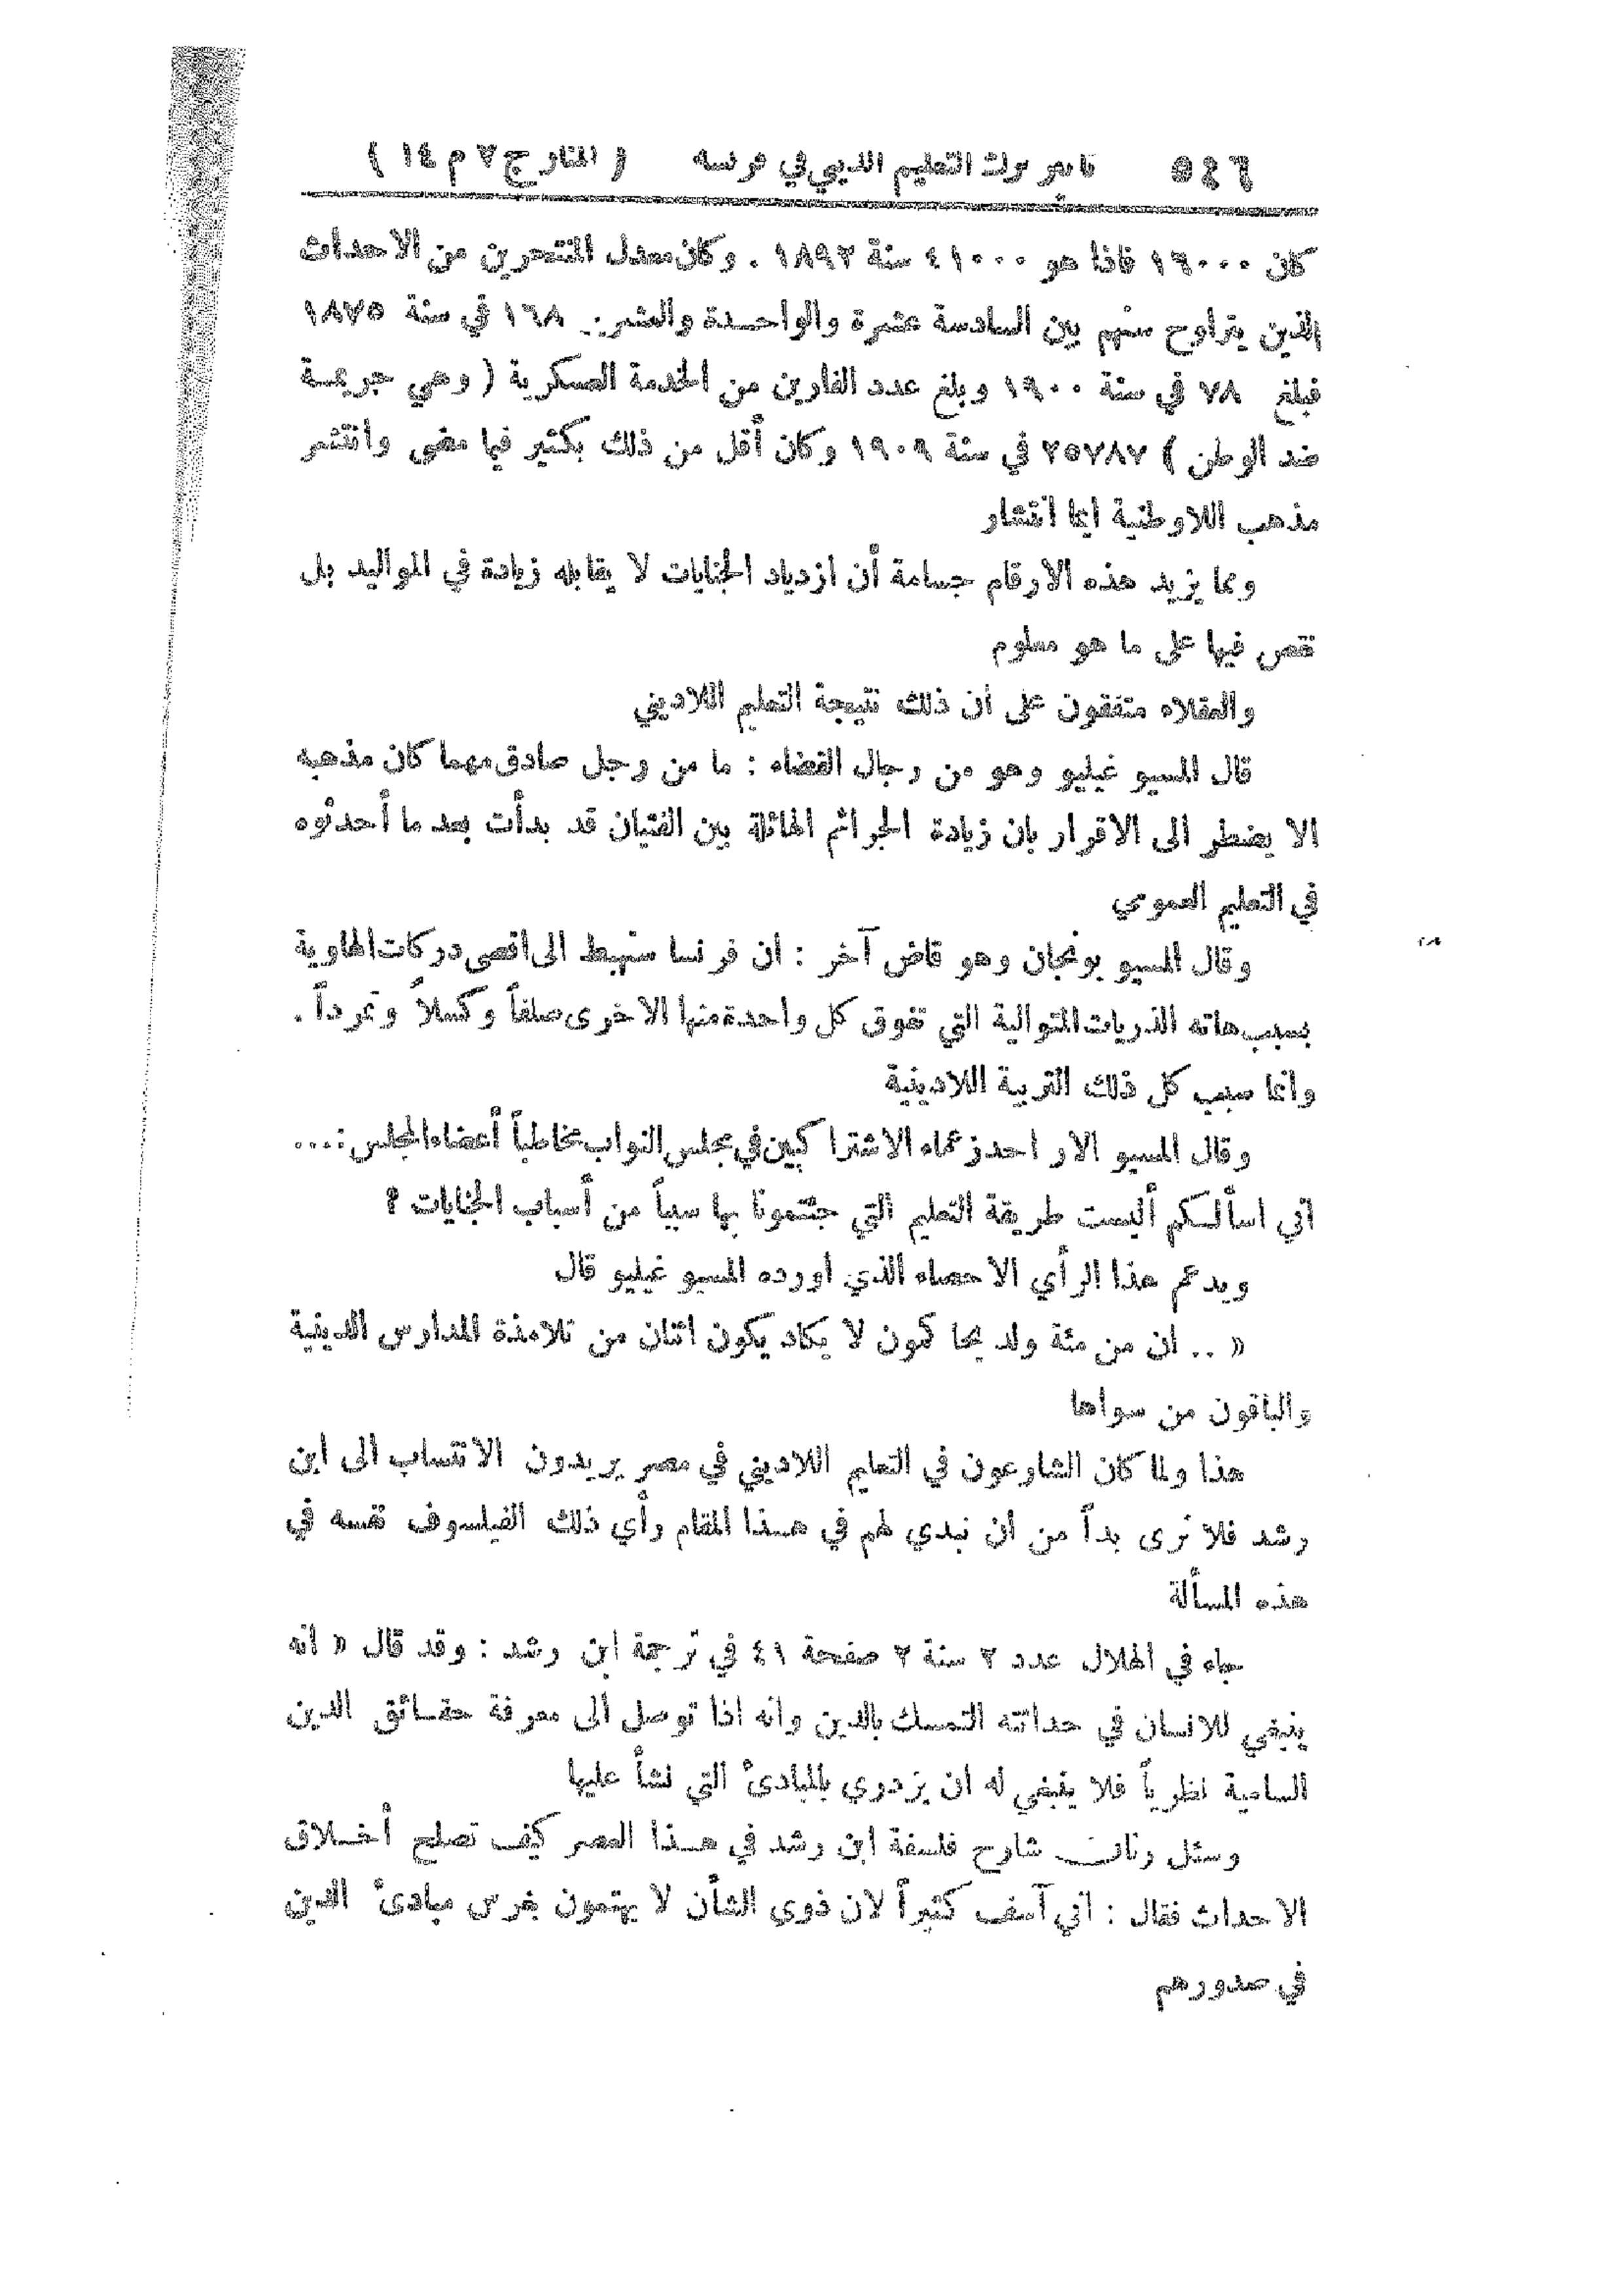 ٥٤٦ تأثير ترك التعليم الديني في فرنسه ( المنار ج ٧ م ١٤ )
كان ١٦٠٠٠ فاذا هو ٤١٠٠٠ سنة ١٨٩٢ . وكان معدل المنتحرين من الاحداث
الذين يتراوح سنهم بين السادسة عشرة والواحدة والعشرين ١٦٨ في سنة ١٨٧٥
فبلغ ٧٨ في سنة ١٩٠٠ وبلغ عدد الفارين من الخدمة العسكرية ( وهي جريمة
ضد الوطن ) ٢٥٧٨٧ في سنة ١٩٠٩ وكان أقل من ذلك بكثير فيما مضى وانتشر
مذهب اللاوطنية ايما انتشار
ومما يزيد هذه الارقام جسامة أن ازدياد الجنايات لا يقابله زيادة في المواليد بل
نقص فيها على ما هو معلوم
والعقلاء متفقون على ان ذلك نتيجة التعليم اللاديني
قال المسيو غيليو وهو من رجال القضاء : ما من رجل صادق مهما كان مذهبه
الا يضطر الى الاقرار بان زيادة الجرائم الهائلة بين الفتيان قد بدأت بعد ما أحدثوه
في التعليم العمومي
وقال المسيو بونجان وهو قاض آخر : ان فرنسا ستهبط الى اقصى دركات الهاوية
بسبب هاته الذريات المتوالية التي تفوق كل واحدة منها الاخرى صلفاً وكسلاً وتمرداً .
وانما سبب كل ذلك التربية اللادينية
وقال المسيو الار احد زعماء الاشتراكيين في مجلس النواب مخاطباً أعضاء المجلس : ...
اني اسألكم أليست طريقة التعليم التي جئتمونا بها سبباً من أسباب الجنايات ؟
ويدعم هذا الرأي الاحصاء الذي اورده المسيو غيليو قال
« .. ان من مئة ولد يحاكمون لا يكاد يكون اثنان من تلامذة المدارس الدينية
والباقون من سواها
هذا ولما كان الشارعون في التعليم اللاديني في مصر يريدون الانتساب الى ابن
رشد فلا نرى بداً من ان نبدي لهم في هذا المقام رأي ذلك الفيلسوف نفسه في
هذه المسألة
جاء في الهلال عدد ٢ سنة ٢ صفحة ٤١ في ترجمة ابن رشد : وقد قال « انه
ينبغي للانسان في حداثته التمسك بالدين وانه اذا توصل الى معرفة حقائق الدين
السامية نظرياً فلا ينبغي له ان يزدري بالمبادئ التي نشأ عليها
وسئل رنان شارح فلسفة ابن رشد في هذا العصر كيف تصلح أخلاق
الاحداث فقال : اني آسف كثيراً لان ذوي الشأن لا يهتمون بغرس مبادئ الدين
في صدورهم